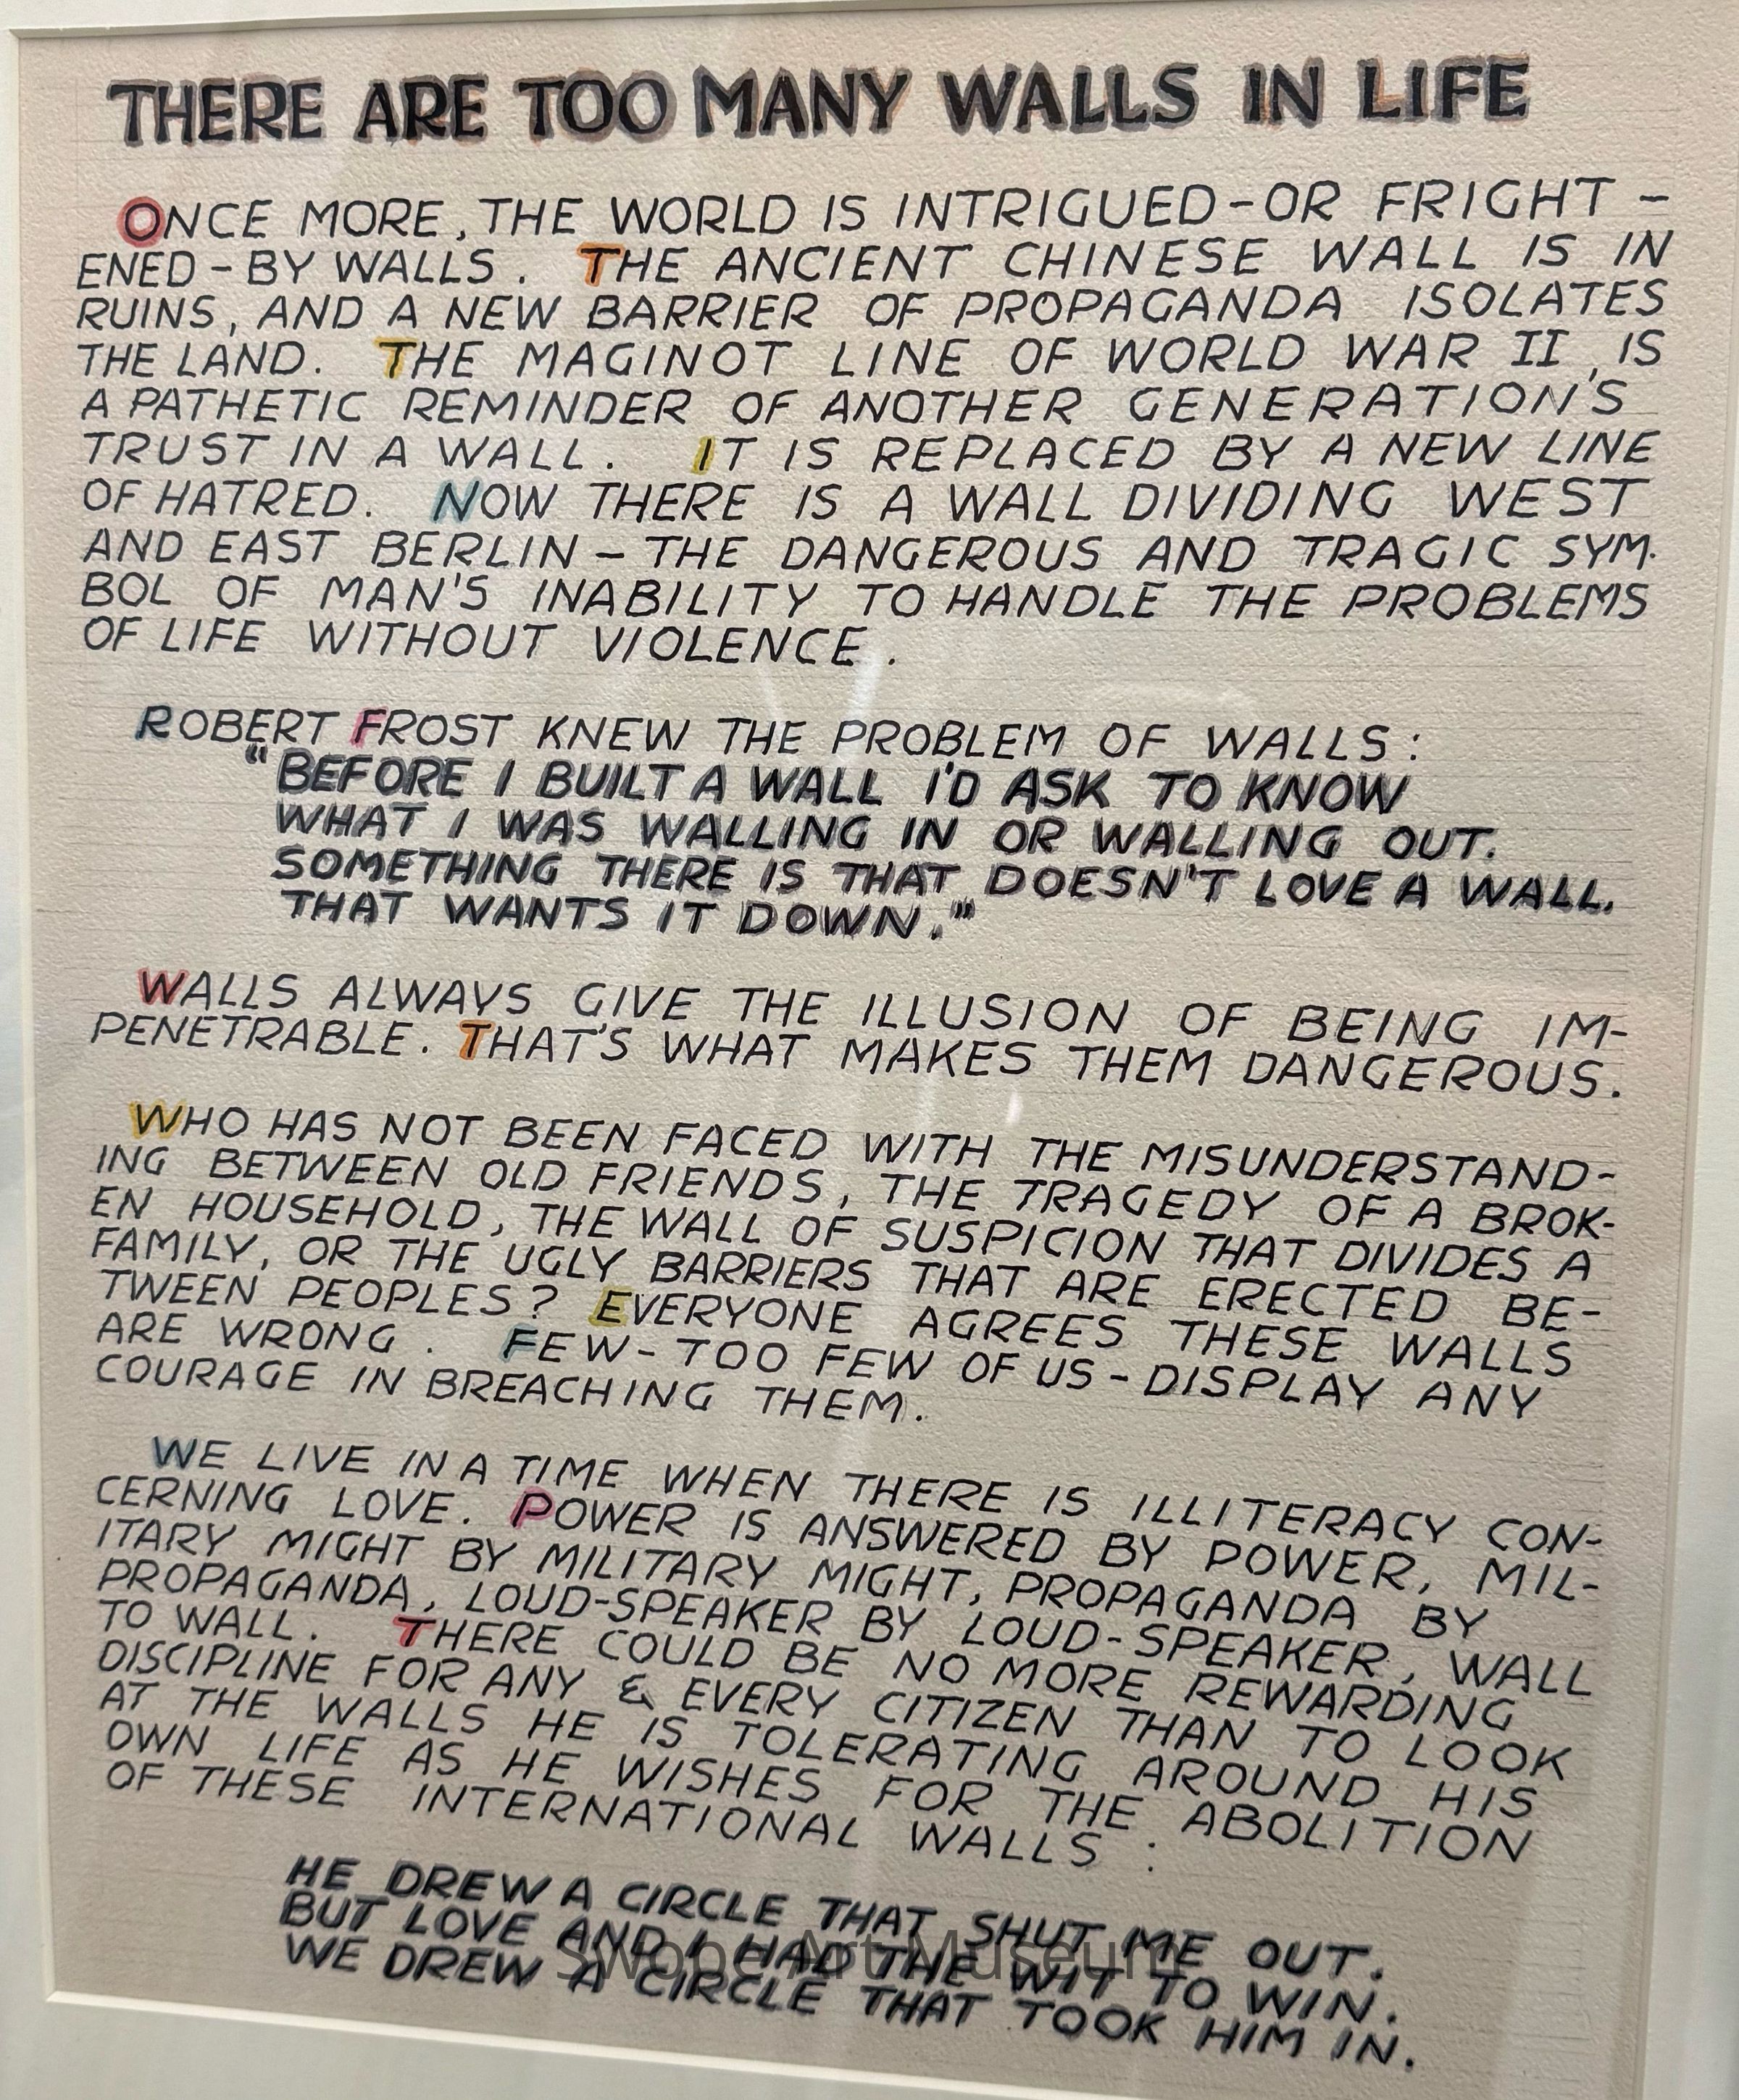 THERE ARE TOO MANY WALLS IN LIFE
ONCE MORE, THE WORLD IS INTRIGUED-OR FRIGHT-
ENED-BY WALLS. THE ANCIENT CHINESE WALL IS IN
RUINS, AND A NEW BARRIER OF PROPAGANDA ISOLATES
THE LAND. THE MAGINOT LINE OF WORLD WAR II, IS
A PATHETIC REMINDER OF ANOTHER GENERATION'S
TRUST IN A WALL. IT IS REPLACED BY A NEW LINE
OF HATRED. NOW THERE IS A WALL DIVIDING WEST
AND EAST BERLIN - THE DANGEROUS AND TRAGIC SYM-
BOL OF MAN'S INABILITY TO HANDLE THE PROBLEMS
OF LIFE WITHOUT VIOLENCE.
ROBERT FROST KNEW THE PROBLEM OF WALLS:
"BEFORE I BUILT A WALL I'D ASK TO KNOW
WHAT I WAS WALLING IN OR WALLING OUT.
SOMETHING THERE IS THAT DOESN'T LOVE A WALL.
THAT WANTS IT DOWN."
WALLS ALWAYS GIVE THE ILLUSION OF BEING IM-
PENETRABLE. THAT'S WHAT MAKES THEM DANGEROUS.
WHO HAS NOT BEEN FACED WITH THE MISUNDERSTAND-
ING BETWEEN OLD FRIENDS, THE TRAGEDY OF A BROK-
EN HOUSEHOLD, THE WALL OF SUSPICION THAT DIVIDES A
FAMILY, OR THE UGLY BARRIERS THAT ARE ERECTED BE-
TWEEN PEOPLES? EVERYONE AGREES THESE WALLS
ARE WRONG. FEW-TOO FEW OF US-DISPLAY ANY
COURAGE IN BREACHING THEM.
WE LIVE IN A TIME WHEN THERE IS ILLITERACY CON-
CERNING LOVE. POWER IS ANSWERED BY POWER, MIL-
ITARY MIGHT BY MILITARY MIGHT, PROPAGANDA BY
PROPAGANDA, LOUD-SPEAKER BY LOUD-SPEAKER, WALL
TO WALL. THERE COULD BE NO MORE REWARDING
DISCIPLINE FOR ANY & EVERY CITIZEN THAN TO LOOK
AT THE WALLS HE IS TOLERATING AROUND HIS
OWN LIFE AS HE WISHES FOR THE ABOLITION
OF THESE INTERNATIONAL WALLS:
HE DREW A CIRCLE THAT SHUT ME OUT.
BUT LOVE AND I HAD THE WIT TO WIN.
WE DREW A CIRCLE THAT TOOK HIM IN.
Swope Art Museum